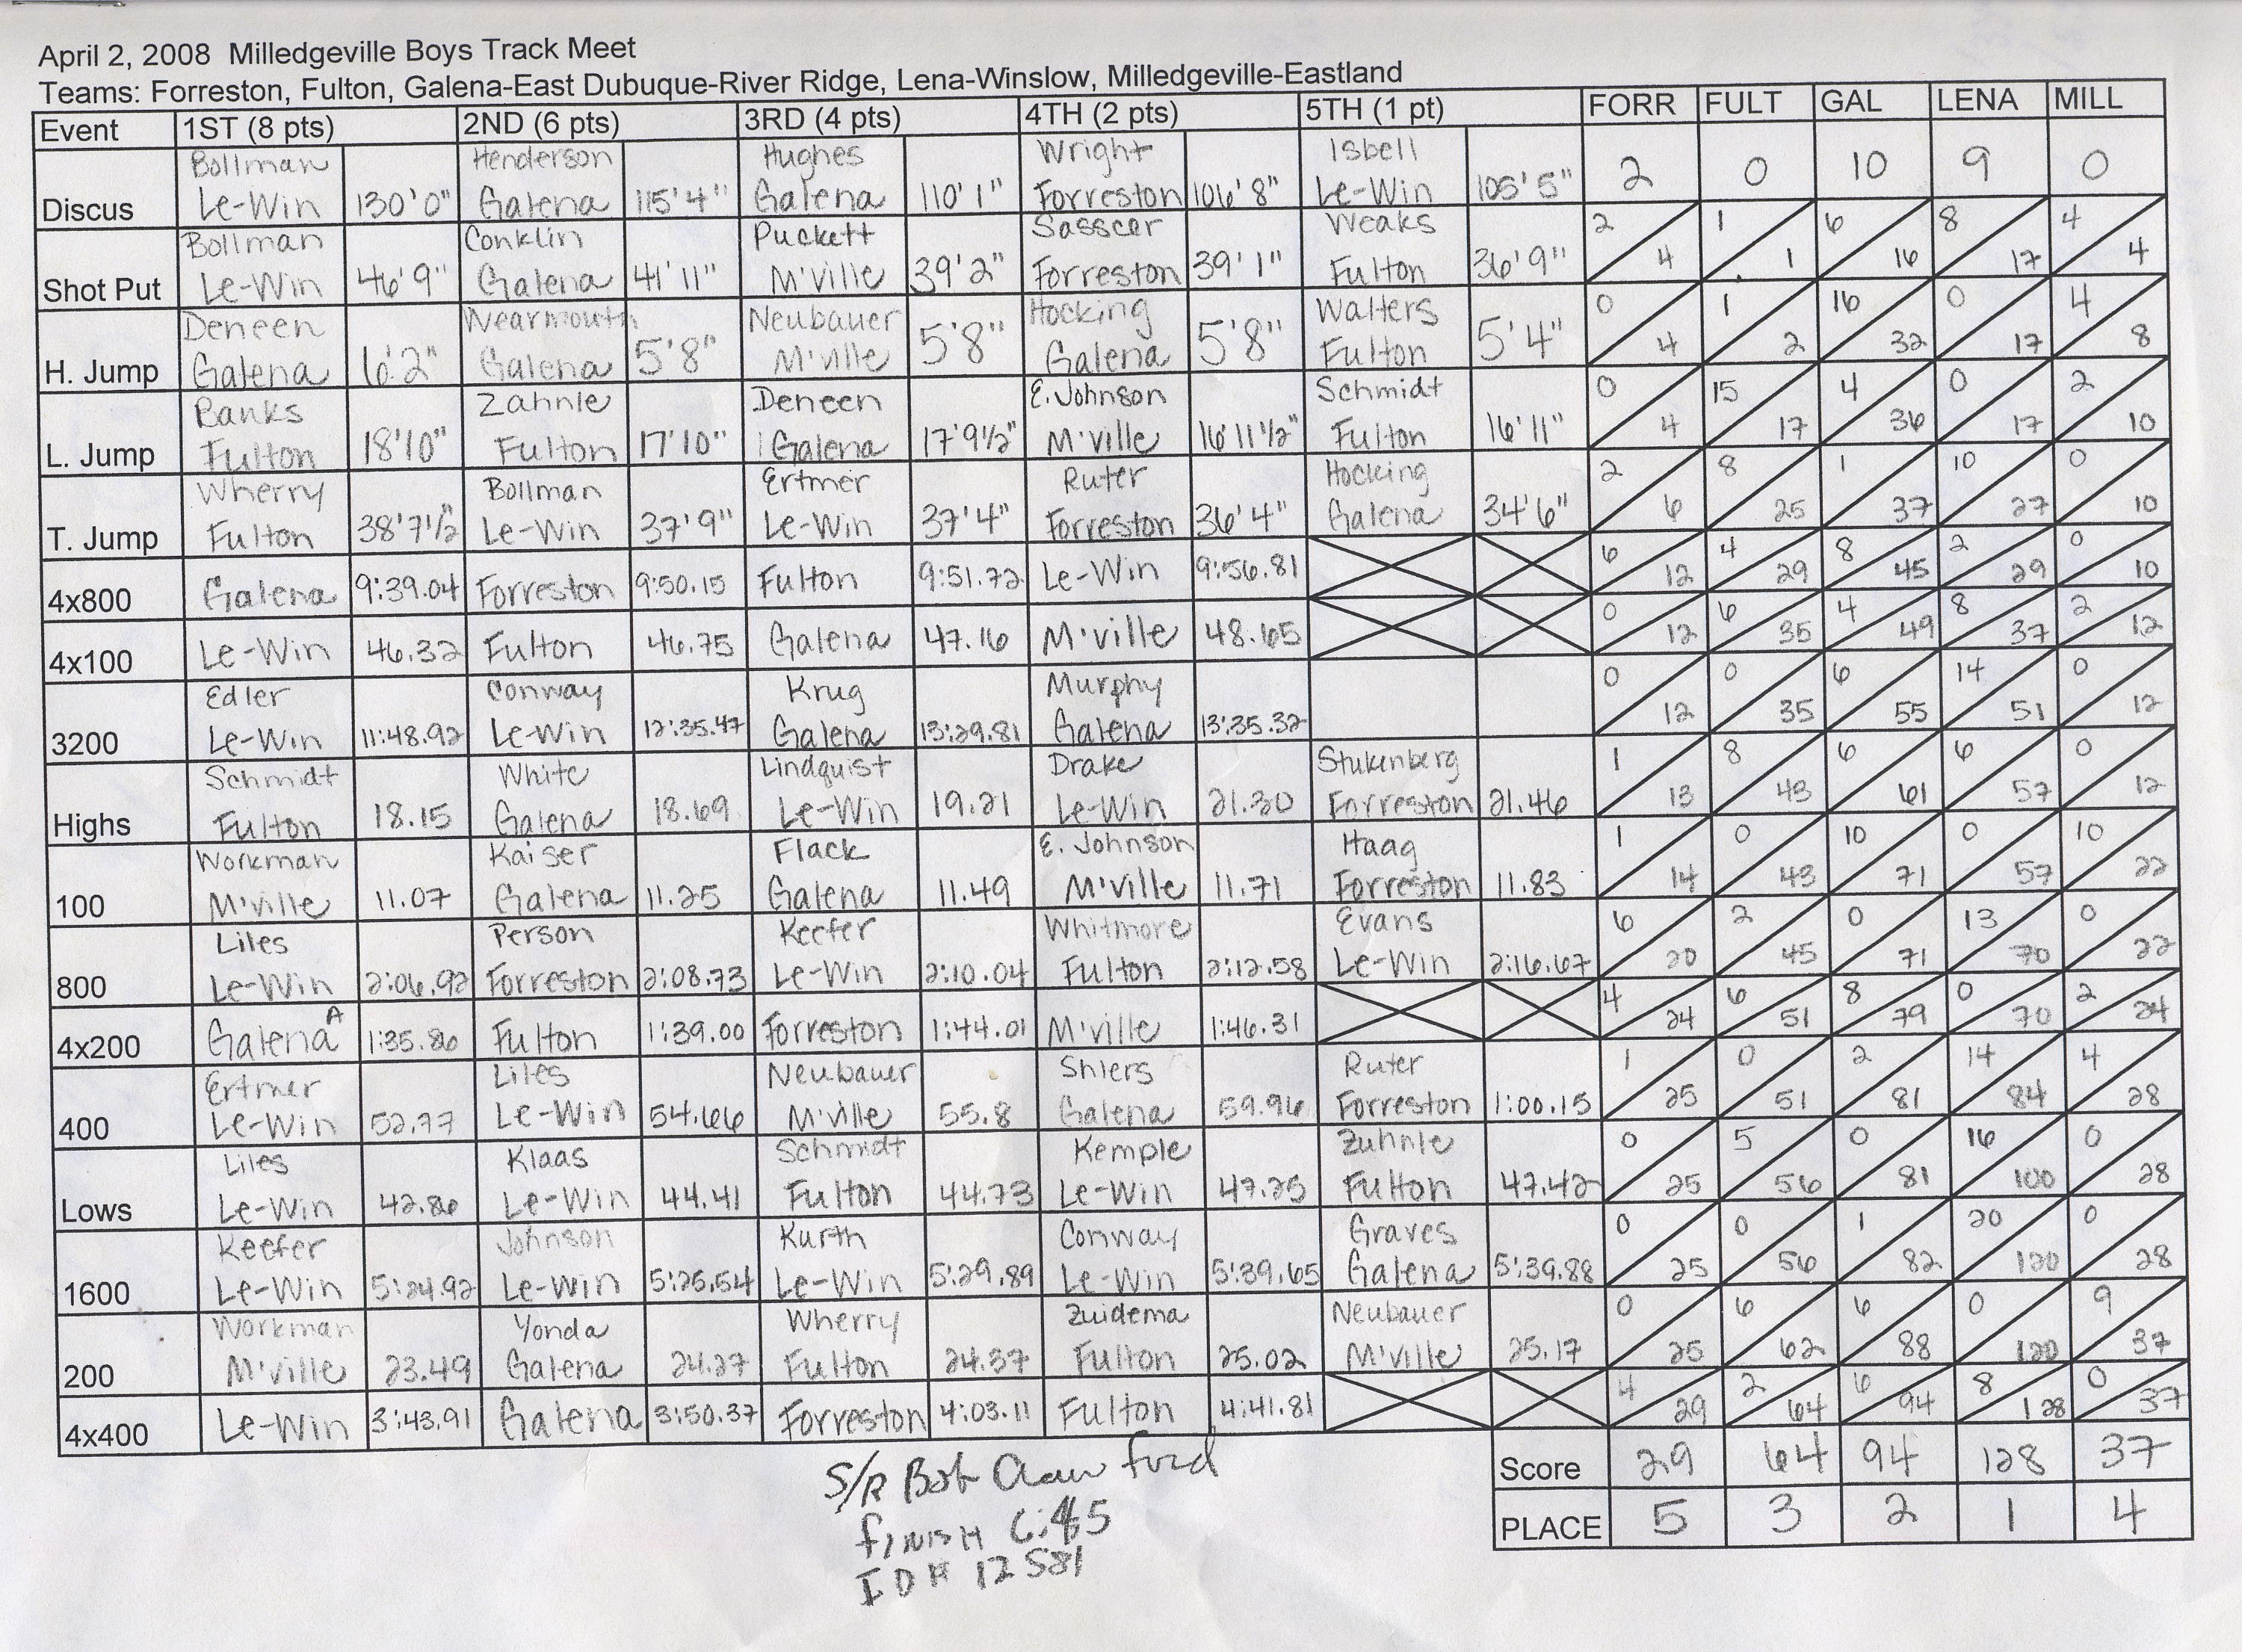 April 2, 2008 Milledgeville Boys Track Meet
Teams: Forreston, Fulton, Galena-East Dubuque-River Ridge, Lena-Winslow, Milledgeville-Eastland
Event 1ST (8 pts) 2ND (6 pts) 3RD (4 pts) 4TH (2 pts) 5TH (1 pt) FORR FULT GAL LENA MILL
Bollman Henderson Hughes Wright Isbell
Discus Le-Win 130'0" Galena 115'4" Galena 110'1" Forreston 106'8" Le-Win 105'5" 2 0 10 9 0
Bollman Conklin Puckett Sasscer Weaks 2 1 6 8 4
Shot Put Le-Win 46'9" Galena 41'11" M'ville 39'2" Forreston 39'1" Fulton 36'9" 4 1 16 17 4
Deneen Wearmouth Neubauer Hocking Walters 0 1 16 0 4
H. Jump Galena 6'2" Galena 5'8" M'ville 5'8" Galena 5'8" Fulton 5'4" 4 2 32 17 8
Banks Zahnle Deneen E. Johnson Schmidt 0 15 4 0 2
L. Jump Fulton 18'10" Fulton 17'10" Galena 17'9½" M'ville 16'11½" Fulton 16'11" 4 17 36 17 10
Wherry Bollman Ertmer Ruter Hocking 2 8 1 10 0
T. Jump Fulton 38'7½" Le-Win 37'9" Le-Win 37'4" Forreston 36'4" Galena 34'6" 6 25 37 27 10
6 4 8 2 0
4x800 Galena 9:39.04 Forreston 9:50.15 Fulton 9:51.72 Le-Win 9:56.81 12 29 45 29 10
0 6 4 8 2
4x100 Le-Win 46.32 Fulton 46.75 Galena 47.16 M'ville 48.65 12 35 49 37 12
Edler Conway Krug Murphy 0 0 6 14 0
3200 Le-Win 11:48.92 Le-Win 12:35.47 Galena 13:29.81 Galena 13:35.32 12 35 55 51 12
Schmidt White Lindquist Drake Stukenberg 1 8 6 6 0
Highs Fulton 18.15 Galena 18.69 Le-Win 19.21 Le-Win 21.30 Forreston 21.46 13 43 61 57 12
Workman Kaiser Flack E. Johnson Haag 1 0 10 0 10
100 M'ville 11.07 Galena 11.25 Galena 11.49 M'ville 11.71 Forreston 11.83 14 43 71 57 22
Liles Person Keefer Whitmore Evans 6 2 0 13 0
800 Le-Win 2:06.92 Forreston 2:08.73 Le-Win 2:10.04 Fulton 2:12.58 Le-Win 2:16.67 20 45 71 70 22
A 4 6 8 0 2
4x200 Galena 1:35.86 Fulton 1:39.00 Forreston 1:44.01 M'ville 1:46.31 24 51 79 70 24
Ertmer Liles Neubauer Shlers Ruter 1 0 2 14 4
400 Le-Win 52.77 Le-Win 54.66 M'ville 55.8 Galena 59.96 Forreston 1:00.15 25 51 81 84 28
Liles Klaas Schmidt Kemple Zuhnle 0 5 0 16 0
Lows Le-Win 42.86 Le-Win 44.41 Fulton 44.73 Le-Win 47.25 Fulton 47.42 25 56 81 100 28
Keefer Johnson Kurth Conway Graves 0 0 1 20 0
1600 Le-Win 5:24.92 Le-Win 5:25.54 Le-Win 5:29.89 Le-Win 5:39.65 Galena 5:39.88 25 56 82 120 28
Workman Yonda Wherry Zuidema Neubauer 0 6 6 0 9
200 M'ville 23.49 Galena 24.27 Fulton 24.37 Fulton 25.02 M'ville 25.17 25 62 88 120 37
4 2 6 8 0
4x400 Le-Win 3:43.91 Galena 3:50.37 Forreston 4:03.11 Fulton 4:41.81 29 64 94 128 37
Score 29 64 94 128 37
PLACE 5 3 2 1 4
S/R Bob
FINISH 6:45
ID# 12581